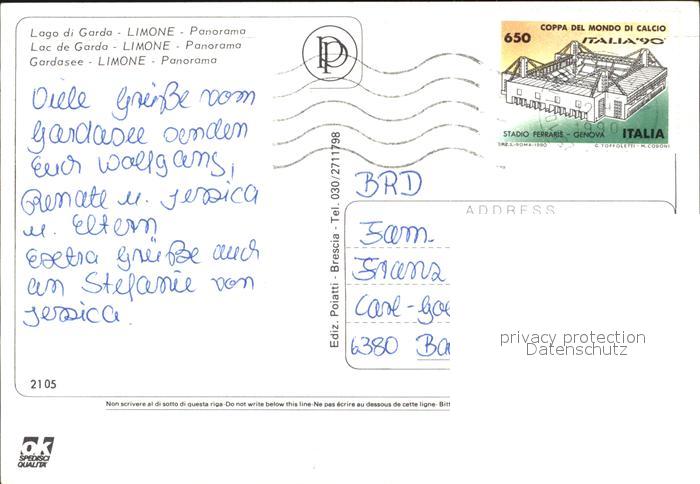 Lago di Garda - LIMONE - Panorama
Lac de Garda - LIMONE - Panorama
Gardasee - LIMONE - Panorama
Viele Grüße vom
Gardasee senden
Euch Wolfgang,
Renate u. Jessica
u. Eltern
Extra Grüße auch
an Stefanie von
Jessica.
2105
ok
SPEDISCI
QUALITÀ
PP
Ediz. Poiatti - Brescia - Tel. 030/2711798
COPPA DEL MONDO DI CALCIO
650
ITALIA '90
STADIO FERRARIS - GENOVA ITALIA
I.P.Z.S.-ROMA-1990 G. TOFFOLETTI - M. CODONI
1990
BRD
ADDRESS
Fam.
Franz
Carl-Goe
6380 Ba
privacy protection
Datenschutz
Non scrivere al di sotto di questa riga-Do not write below this line-Ne pas écrire au dessous de cette ligne- Bitt